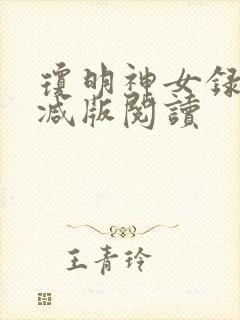 瓊明神女録
减版閱讀
王青玲